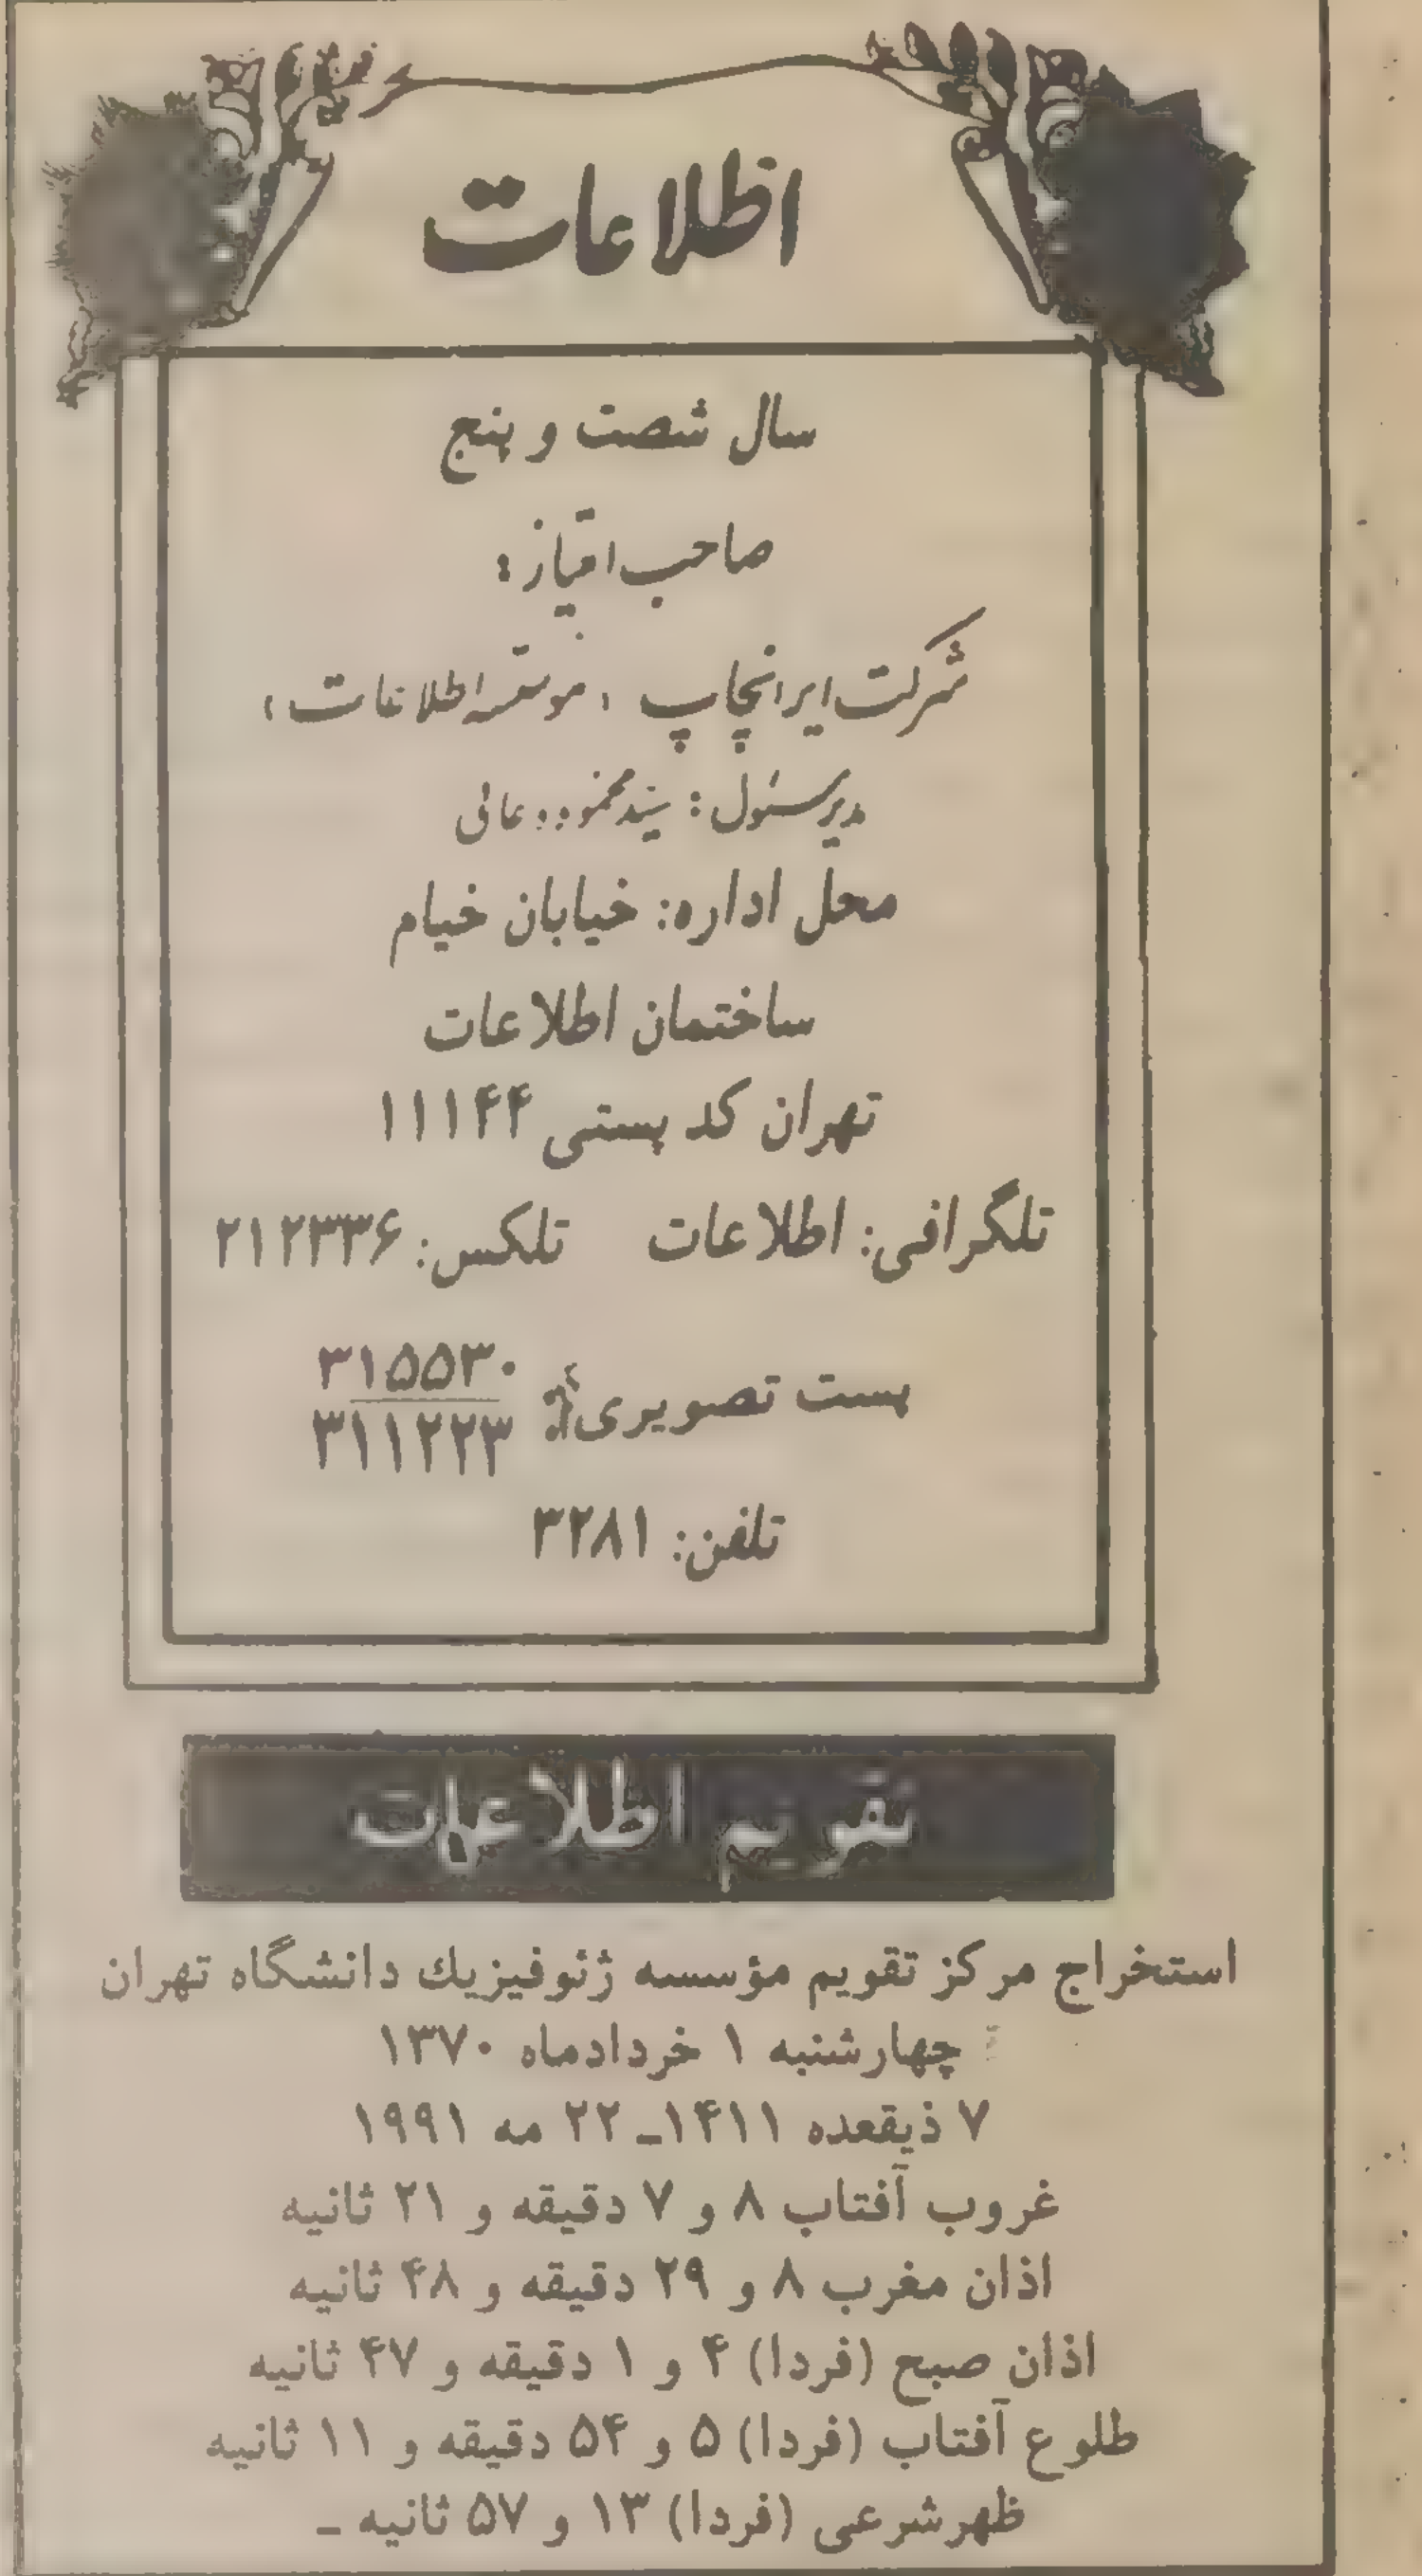 اطلاعات
سال شصت و پنج
صاحب امتیاز:
شرکت ایرانچاپ «موسسه اطلاعات»
مدیر مسئول: سید محمود دعائی
محل اداره: خیابان خیام
ساختمان اطلاعات
تهران کد پستی ۱۱۱۴۴
تلگرافی: اطلاعات تلکس: ۲۱۲۳۳۶
پست تصویری: ۳۱۵۵۳۰
۳۱۱۲۲۳
تلفن: ۳۲۸۱
تقویم اطلاعات
استخراج مرکز تقویم مؤسسه ژئوفیزیك دانشگاه تهران
چهارشنبه ۱ خردادماه ۱۳۷۰
۷ ذیقعده ۱۴۱۱ـ ۲۲ مه ۱۹۹۱
غروب آفتاب ۸ و ۷ دقیقه و ۲۱ ثانیه
اذان مغرب ۸ و ۲۹ دقیقه و ۴۸ ثانیه
اذان صبح (فردا) ۴ و ۱ دقیقه و ۴۷ ثانیه
طلوع آفتاب (فردا) ۵ و ۵۴ دقیقه و ۱۱ ثانیه
ظهرشرعی (فردا) ۱۳ و ۵۷ ثانیه ـ